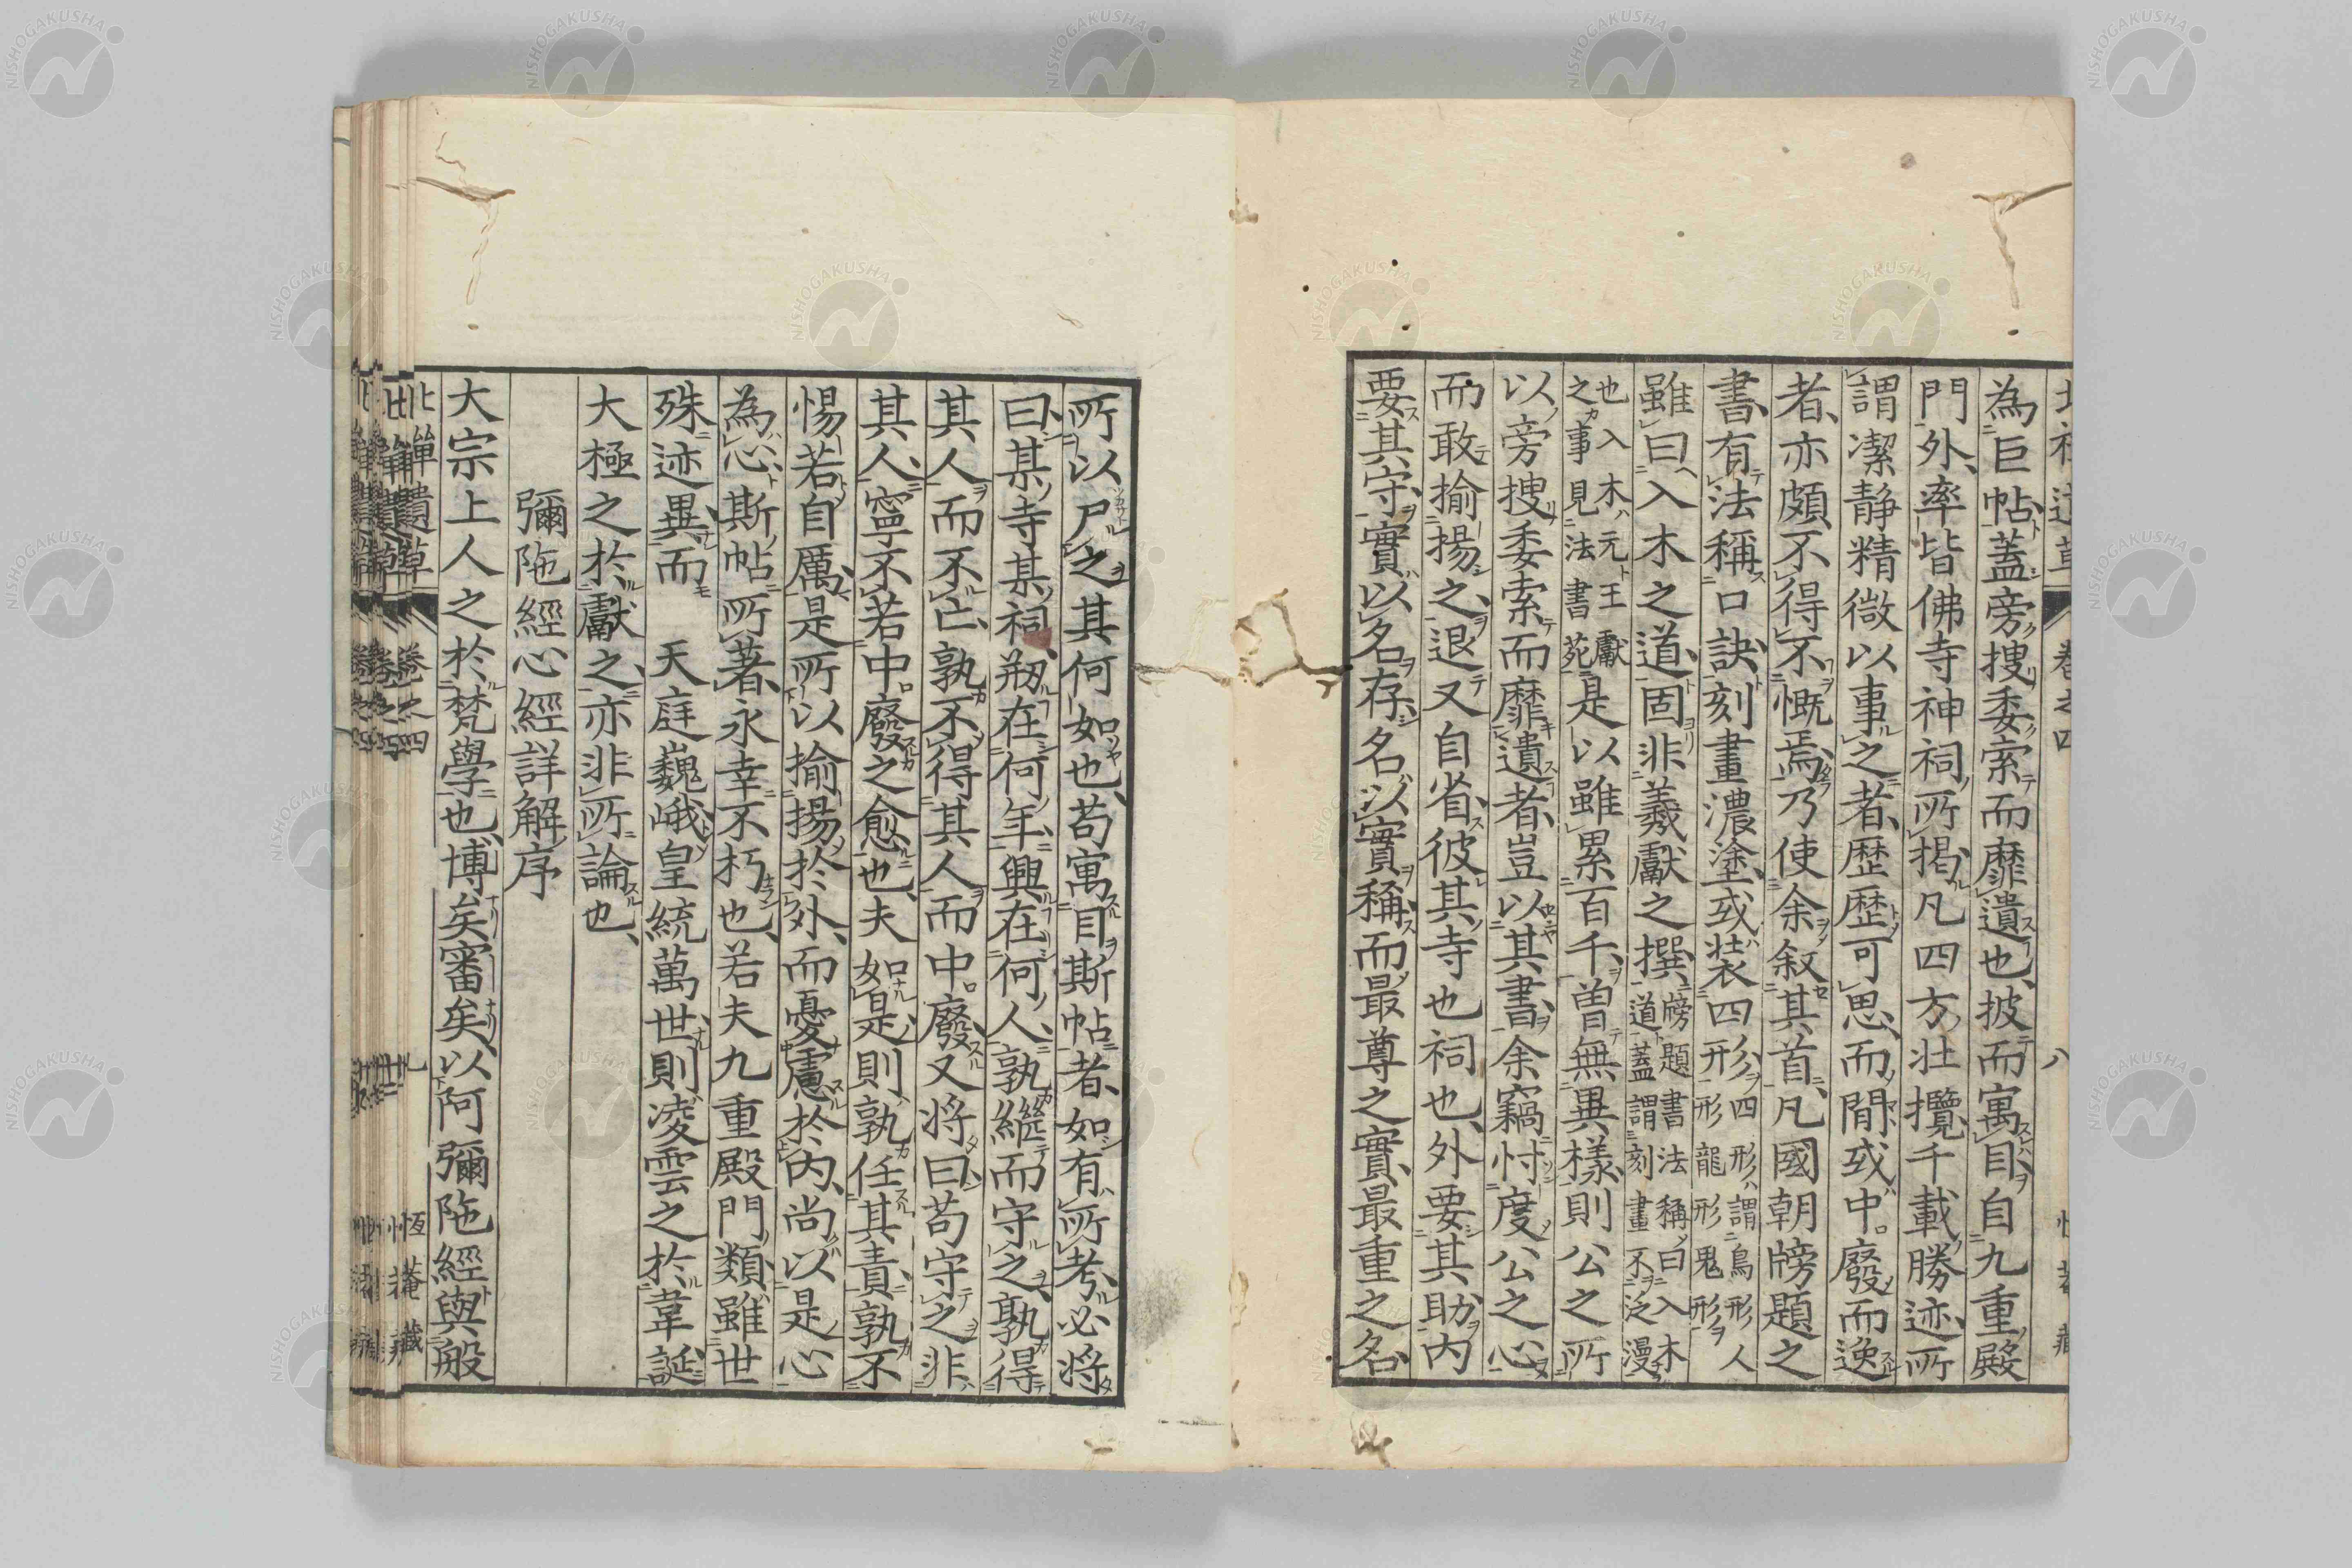 為巨帖蓋旁搜委索而靡遺也披而寓目自九重殿
門外率皆佛寺神祠所掲凡四方壮攬千載勝迹所
謂潔静精微以事之者歴歴可思而間或中廢而逸
者亦頗不得不慨焉乃使余叙其首凡國朝牓題之
書有法稱口訣刻畫濃塗或装四形四形謂鳥形人形龍形鬼形
雖曰入木之道固非羲獻之撰牓題書法稱曰入木道蓋謂刻畫不泛漫
也入木元王獻之事見法書苑是以雖累百千曽無異様則公之所
以旁搜委索而靡遺者豈以其書余竊忖度公之心
而敢揄揚之退又自省彼其寺也祠也外要其助内
要其守實以名存名以實稱而最尊之實最重之名
所以尸之其何如也苟寓目斯帖者如有所考必将
曰某寺某祠剏在何年興在何人孰継而守之孰得
其人而不亡孰不得其人而中廢又将曰苟守之非
其人寧不若中廢之愈也夫如是則孰任其責孰不
惕若自厲是所以揄揚於外而憂慮於内尚以是心
為心斯帖所著永幸不朽也若夫九重殿門類雖世
殊迹異而 天庭巍峨皇統萬世則凌雲之於韋誕
大極之於獻之亦非所論也
彌陁經心經詳解序
大宗上人之於梵學也博矣審矣以阿彌陁經與般
北禅遺草 卷之四 九 恆菴藏